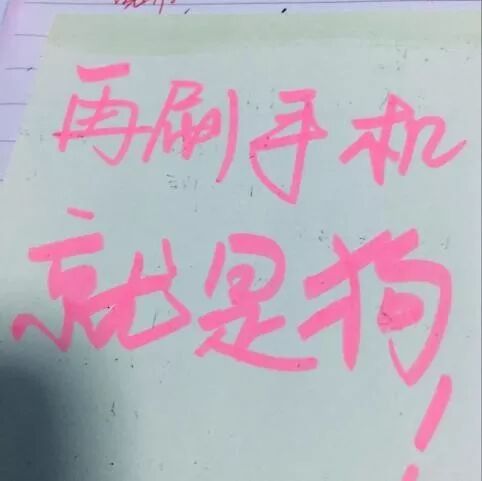 再刷手机
就是狗!